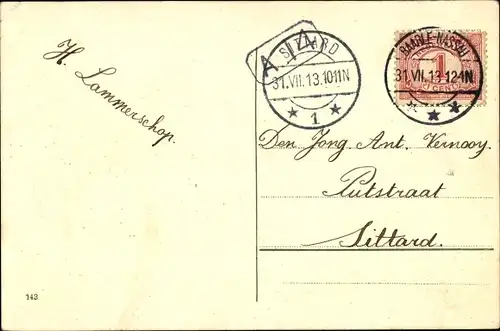 H. Lammerschop.
SITTARD
31.VII.13.1011N
1
BAARLE-NASSAU
31.VII.13-121N
1
CENT
Den Jong Ant. Vernooy.
Putstraat
Sittard.
143